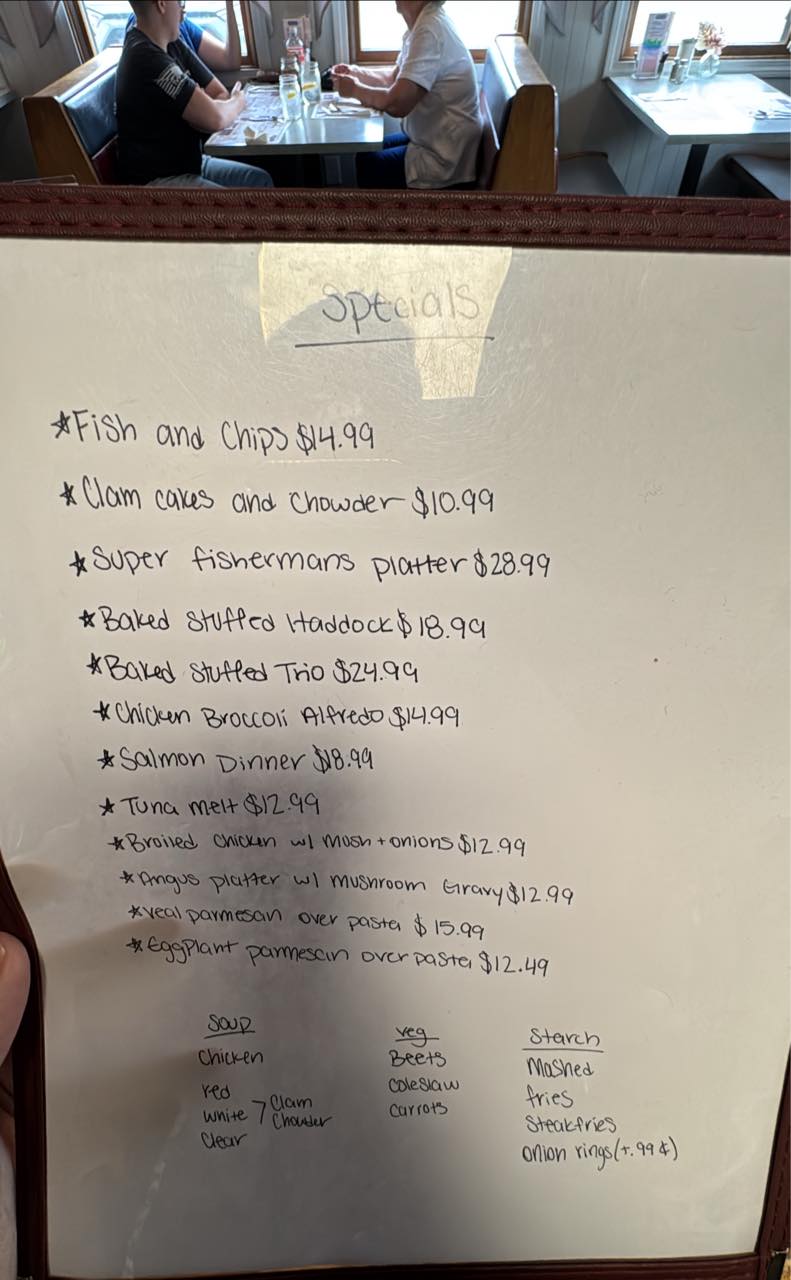 Specials
*Fish and Chips $14.99
*Clam cakes and Chowder $10.99
*Super fishermans platter $28.99
*Baked Stuffed Haddock $18.99
*Baked Stuffed Trio $24.99
*Chicken Broccoli Alfredo $14.99
*Salmon Dinner $18.99
*Tuna melt $12.99
*Broiled chicken w/ mush + onions $12.99
*Angus platter w/ mushroom Gravy $12.99
*veal parmesan over pasta $15.99
*EggPlant parmesan over pasta $12.49
Soup
Chicken
red
white > Clam Chowder
Clear
veg
Beets
Coleslaw
Carrots
Starch
Mashed
fries
Steakfries
onion rings (+.99¢)